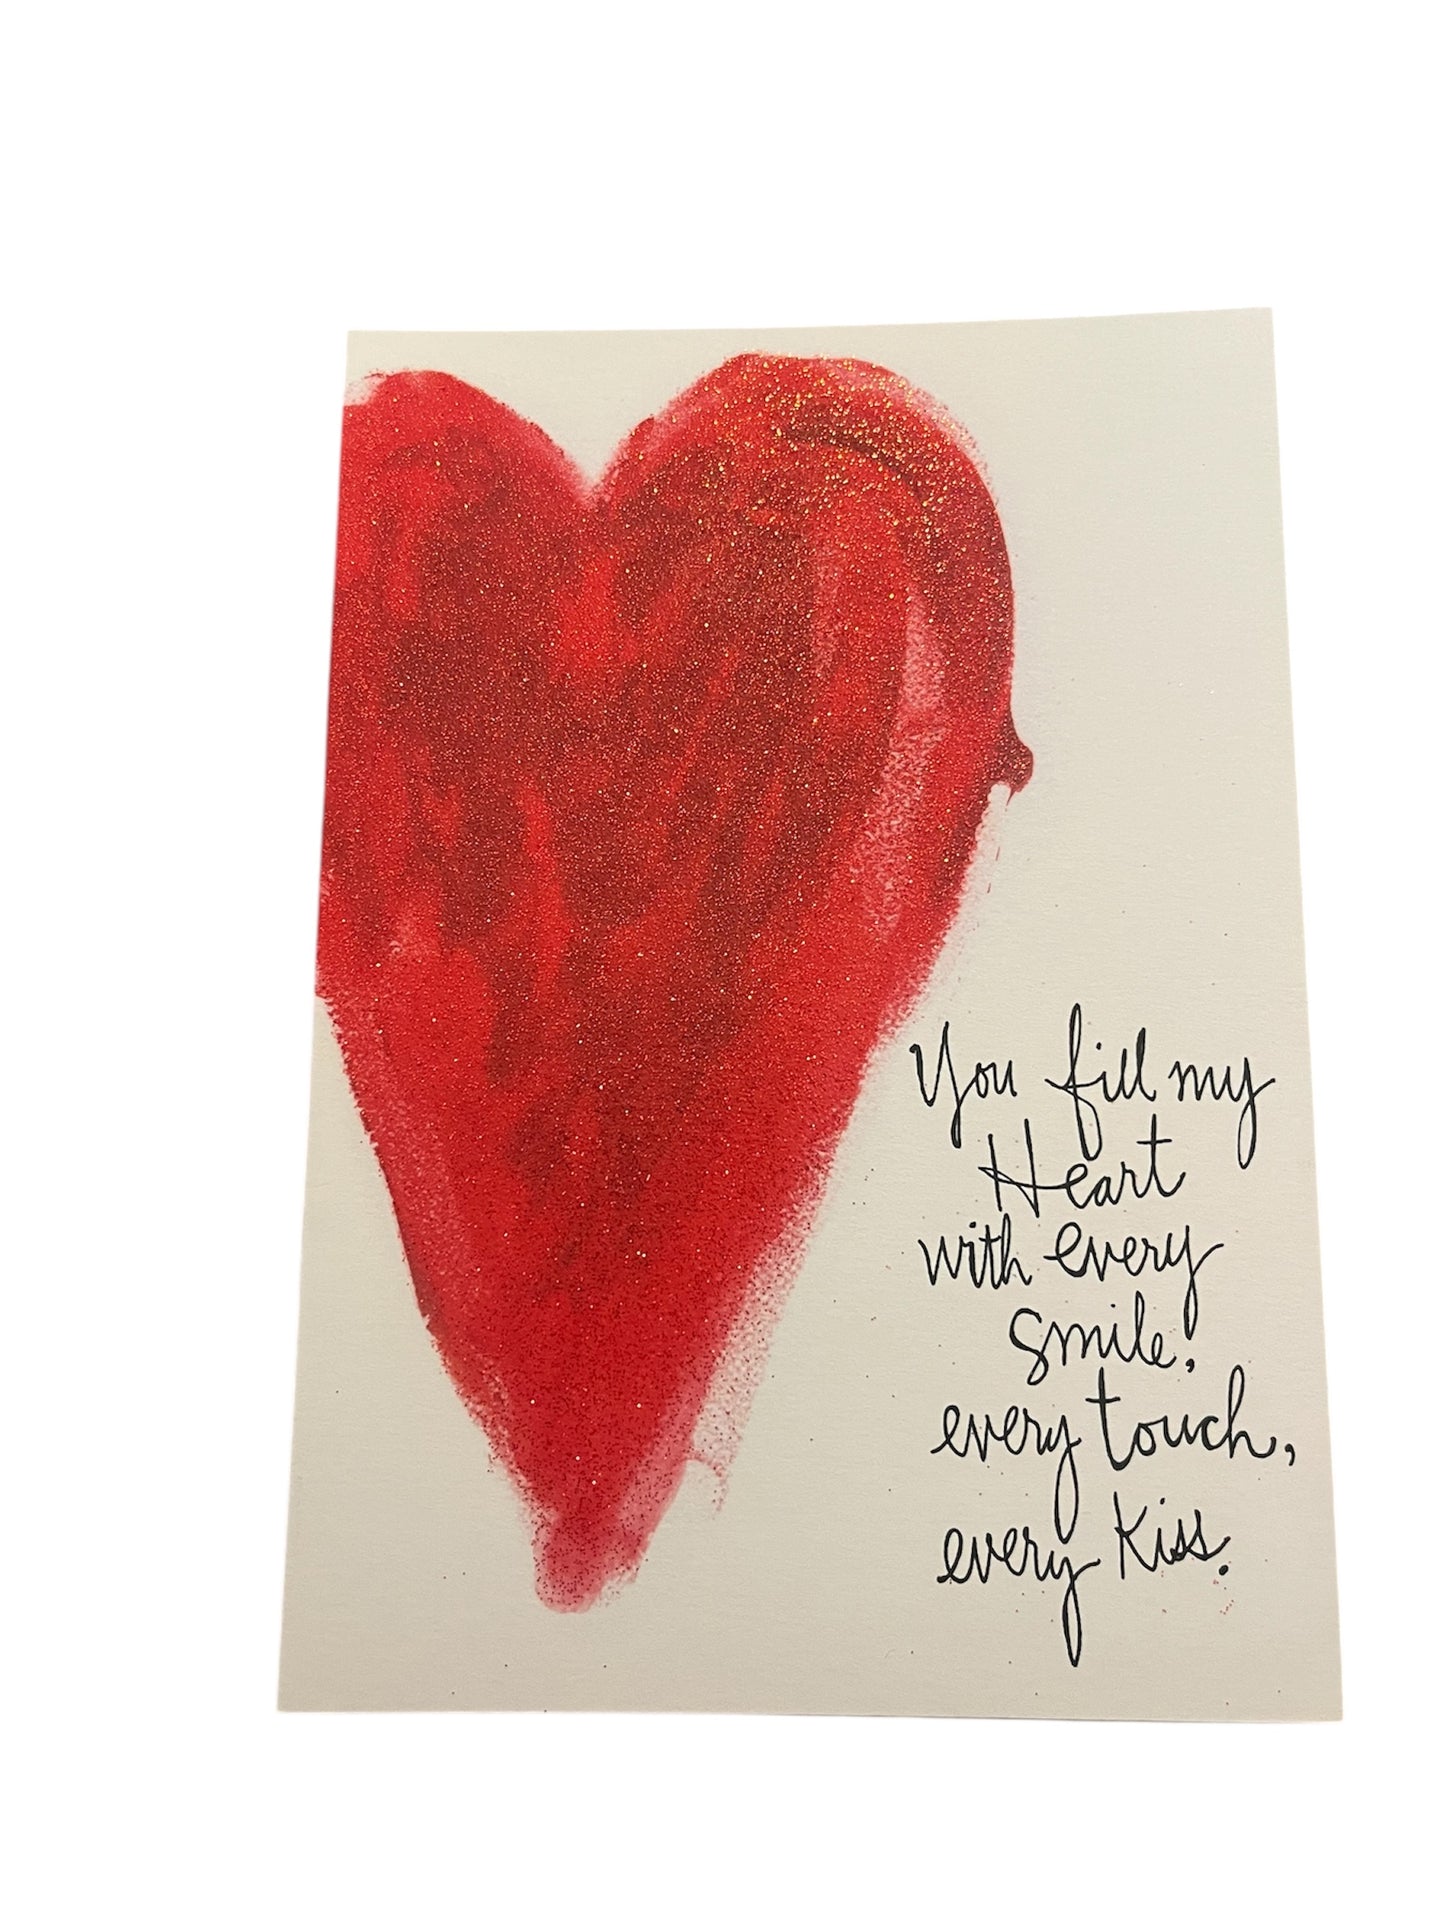 You fill my
Heart
with every
smile,
every touch,
every Kiss.